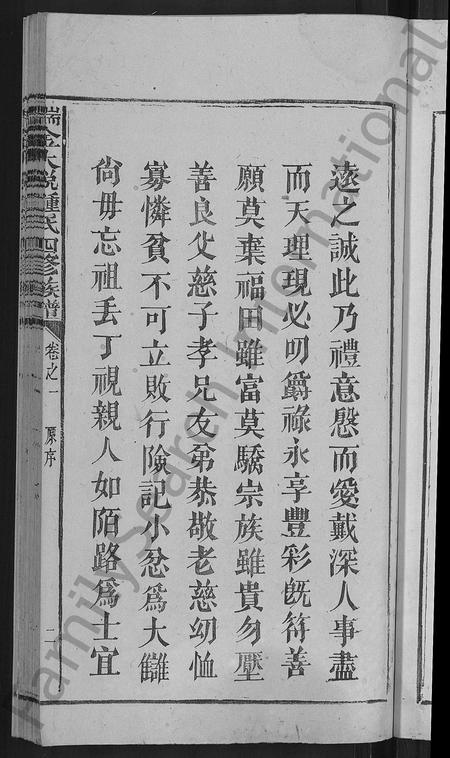 遠之誠此乃禮意慇而愛戴深人事盡
而天理現必叨爵祿永享豐彩旣符善
願莫棄福田雖富莫驕宗族雖貴勿壓
善良父慈子孝兄友弟恭敬老慈幼恤
寡憐貧不可立敗行險記小忿爲大讎
尙毋忘祖丟丁視親人如陌路爲士宜
瑞金大稅鍾氏四修族譜
卷之一
原序
二
FamilySearch International